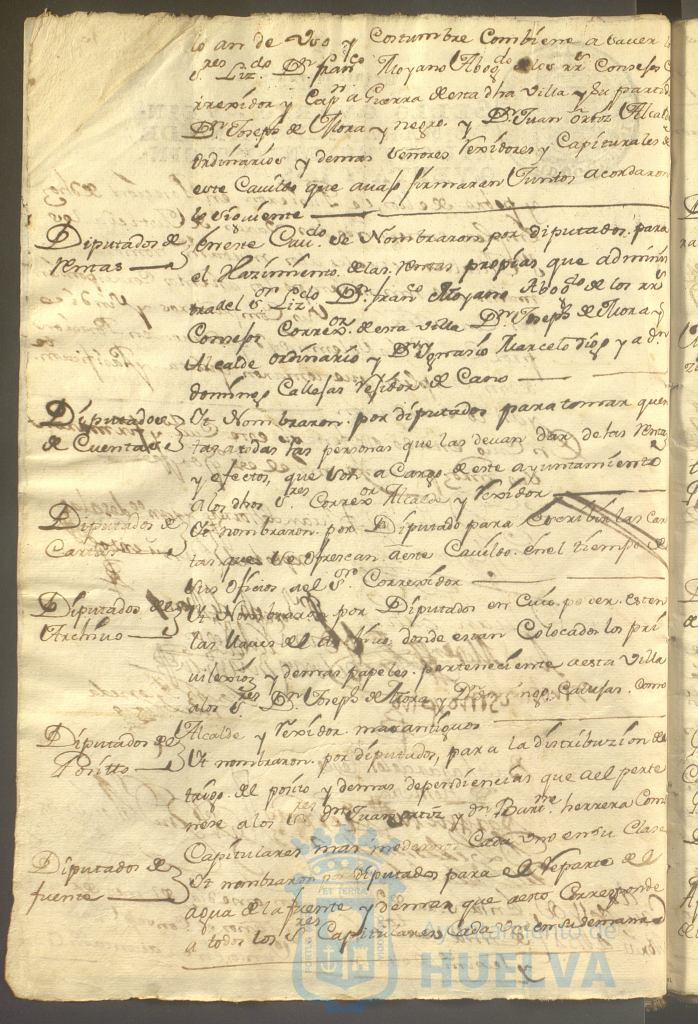 lo an de Uso y Costumbre Combiene a saver
S.res Liz.do D.n Fran.co Moyano Abog.do de los R.s Consejos
rrexidor y Cap.n a Guerra de esta dha Villa y su partido
D.n Joseph de Mora y negro y D.n Juan ortiz Alcaldes
ordinarios y demas señores Rexidores y Capitulares de
este Cauildo que auajo firmaran Juntos acordaron
lo siguiente
Diputados de
Rentas
En este Cau.do se Nombraron por diputados para
el Hazimiento de las Rentas propias que adminis
tra del S.or Liz.do D.n Fran.co Moyano Abog.do de los R.s
Consejos Correx.or de esta Villa D.n Joseph de Mora y
Alcalde ordinario y D.n Marcelo y a D.n
domingo Callejas Rexidor de Cano
Diputados
de Cuentas
Yt Nombraron por diputados para tomar quen
tas a todas las personas que las devan dar de las Rentas
y efectos que son a Cargo de este ayuntamiento
a los dhos S.res Correx.or Alcalde y Rexidor
Diputados de
Cartas
Yt nombraron por Diputado para Escribir las Car
tas que se ofrescan a este Cauildo en el tiempo de
sus oficios a el S.or Correxidor
Diputados del
Archivo
Yt Nombraron por Diputados en Cuio poder esten
las llaves del Archivo donde estan Colocados los pri
uilexios y demas papeles perteneciente a esta Villa
a los S.res D.n Joseph de Mora y Domingo Callejas como
Alcalde y Rexidor mas antiguos
Diputados del
Positto
Yt nombraron por diputados para la distribuzion del
trigo del posito y demas dependiencias que a el perte
nese a los S.res D.n Juan ortiz y D.n Bart.me herrera Como
Capitulares mas modernos Cada uno en su Clase
Diputados de
fuente
Yt nombraron por diputados para el Reparto de el
agua de la fuente y demas que a esto Corresponde
a todos los S.res Capitulares Cada uno en su semana
Ayuntamiento de
HUELVA